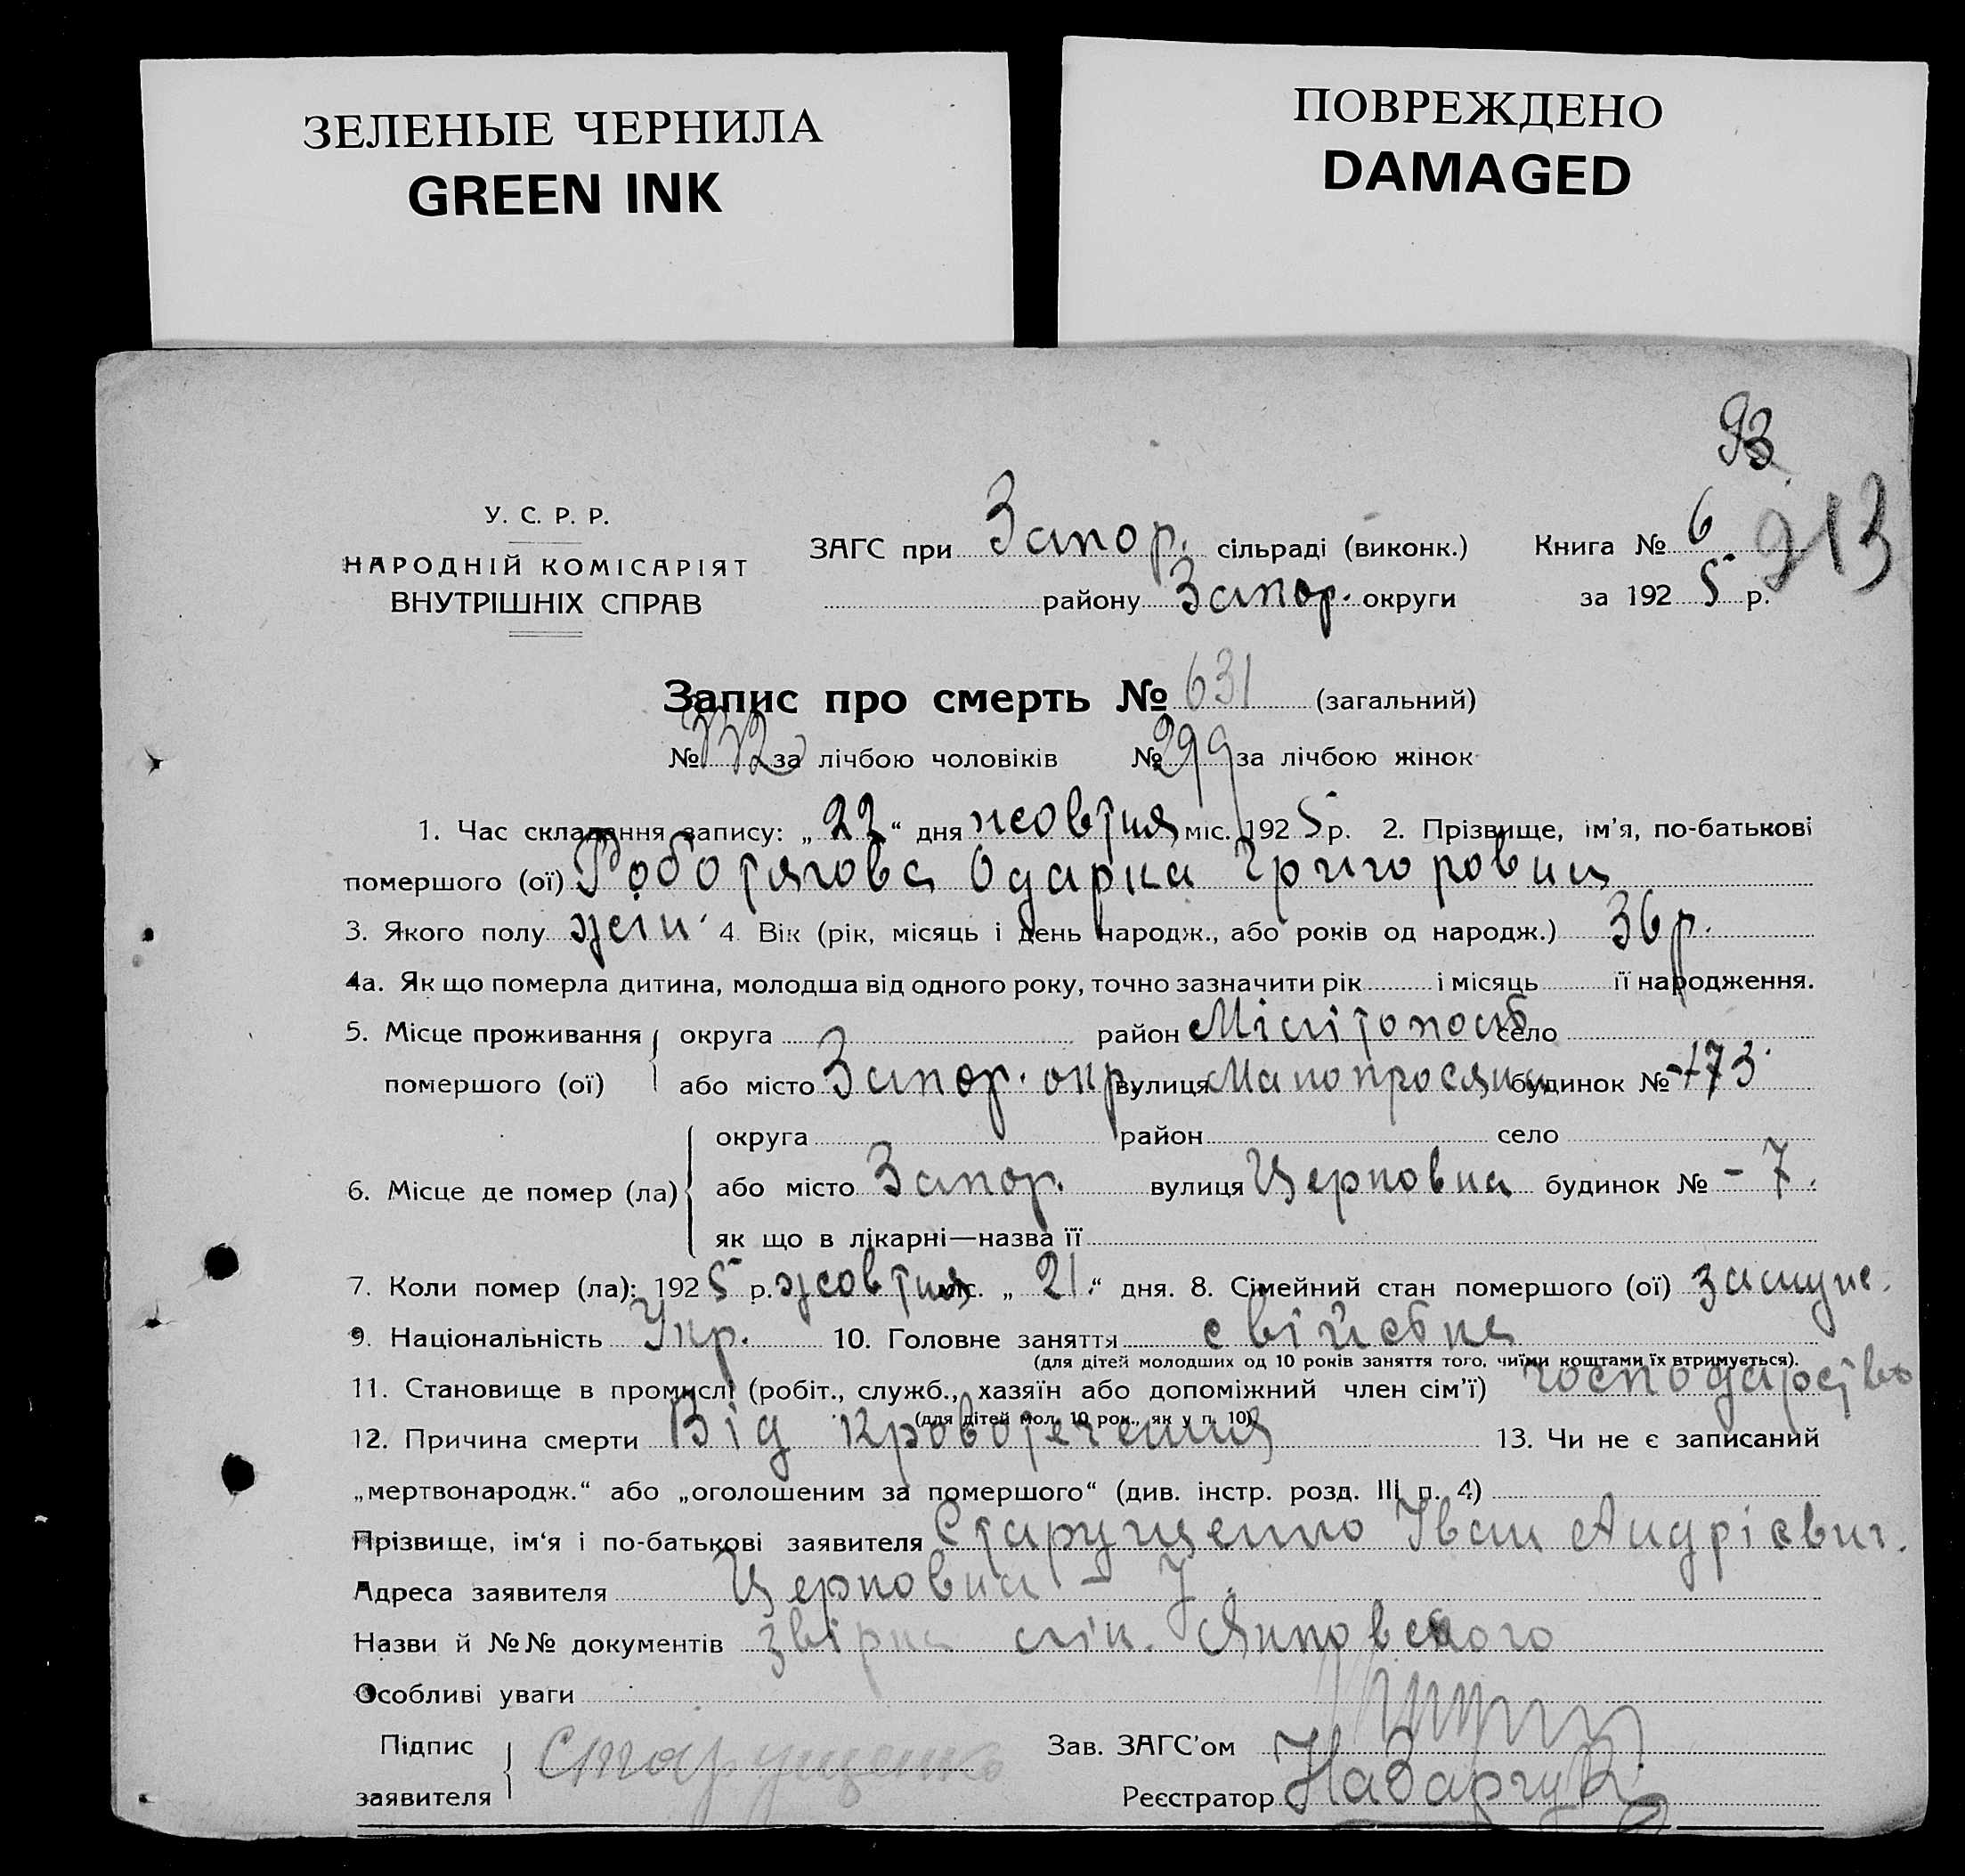 ЗЕЛЕНЫЕ ЧЕРНИЛА
GREEN INK
ПОВРЕЖДЕНО
DAMAGED
93
213
У. С. Р. Р.
НАРОДНІЙ КОМІСАРІЯТ
ВНУТРІШНІХ СПРАВ
ЗАГС при Запор. сільраді (виконк.)
району Запор. округи
Книга № 6
за 1925 р.
Запис про смерть № 631 (загальний)
№ 332 за лічбою чоловіків № 299 за лічбою жінок
1. Час складання запису: „22“ дня жовтня міс. 1925 р. 2. Прізвище, ім'я, по-батькові
помершого (ої) Роботягова Одарка Григоровна
3. Якого полу жін. 4. Вік (рік, місяць і день народж., або років од народж.) 36 р.
4а. Як що померла дитина, молодша від одного року, точно зазначити рік і місяць її народження.
5. Місце проживання помершого (ої) округа район село
або місто Запор. окр. вулиця будинок № 173
6. Місце де помер (ла) округа район село
або місто Запор. вулиця Церковна будинок № - 7.
як що в лікарні—назва її
7. Коли помер (ла): 1925 р. жовтня міс. „21“ дня. 8. Сімейний стан помершого (ої) замужн.
9. Національність Укр. 10. Головне заняття свійське
(для дітей молодших од 10 років заняття того, чиїми коштами їх втримується).
11. Становище в промислі (робіт., служб., хазяїн або допоміжний член сім'ї) господарство
(для дітей мол. 10 рок., як у п. 10)
12. Причина смерти Від кровотечення 13. Чи не є записаний
„мертвонародж.“ або „оголошеним за помершого“ (див. інстр. розд. III п. 4)
Прізвище, ім'я і по-батькові заявителя Старущенко Іван Андрієвич.
Адреса заявителя Церковна - 7.
Назви й №№ документів Янковского
Особливі уваги
Підпис заявителя Старущенко
Зав. ЗАГС'ом
Реєстратор Назарчук